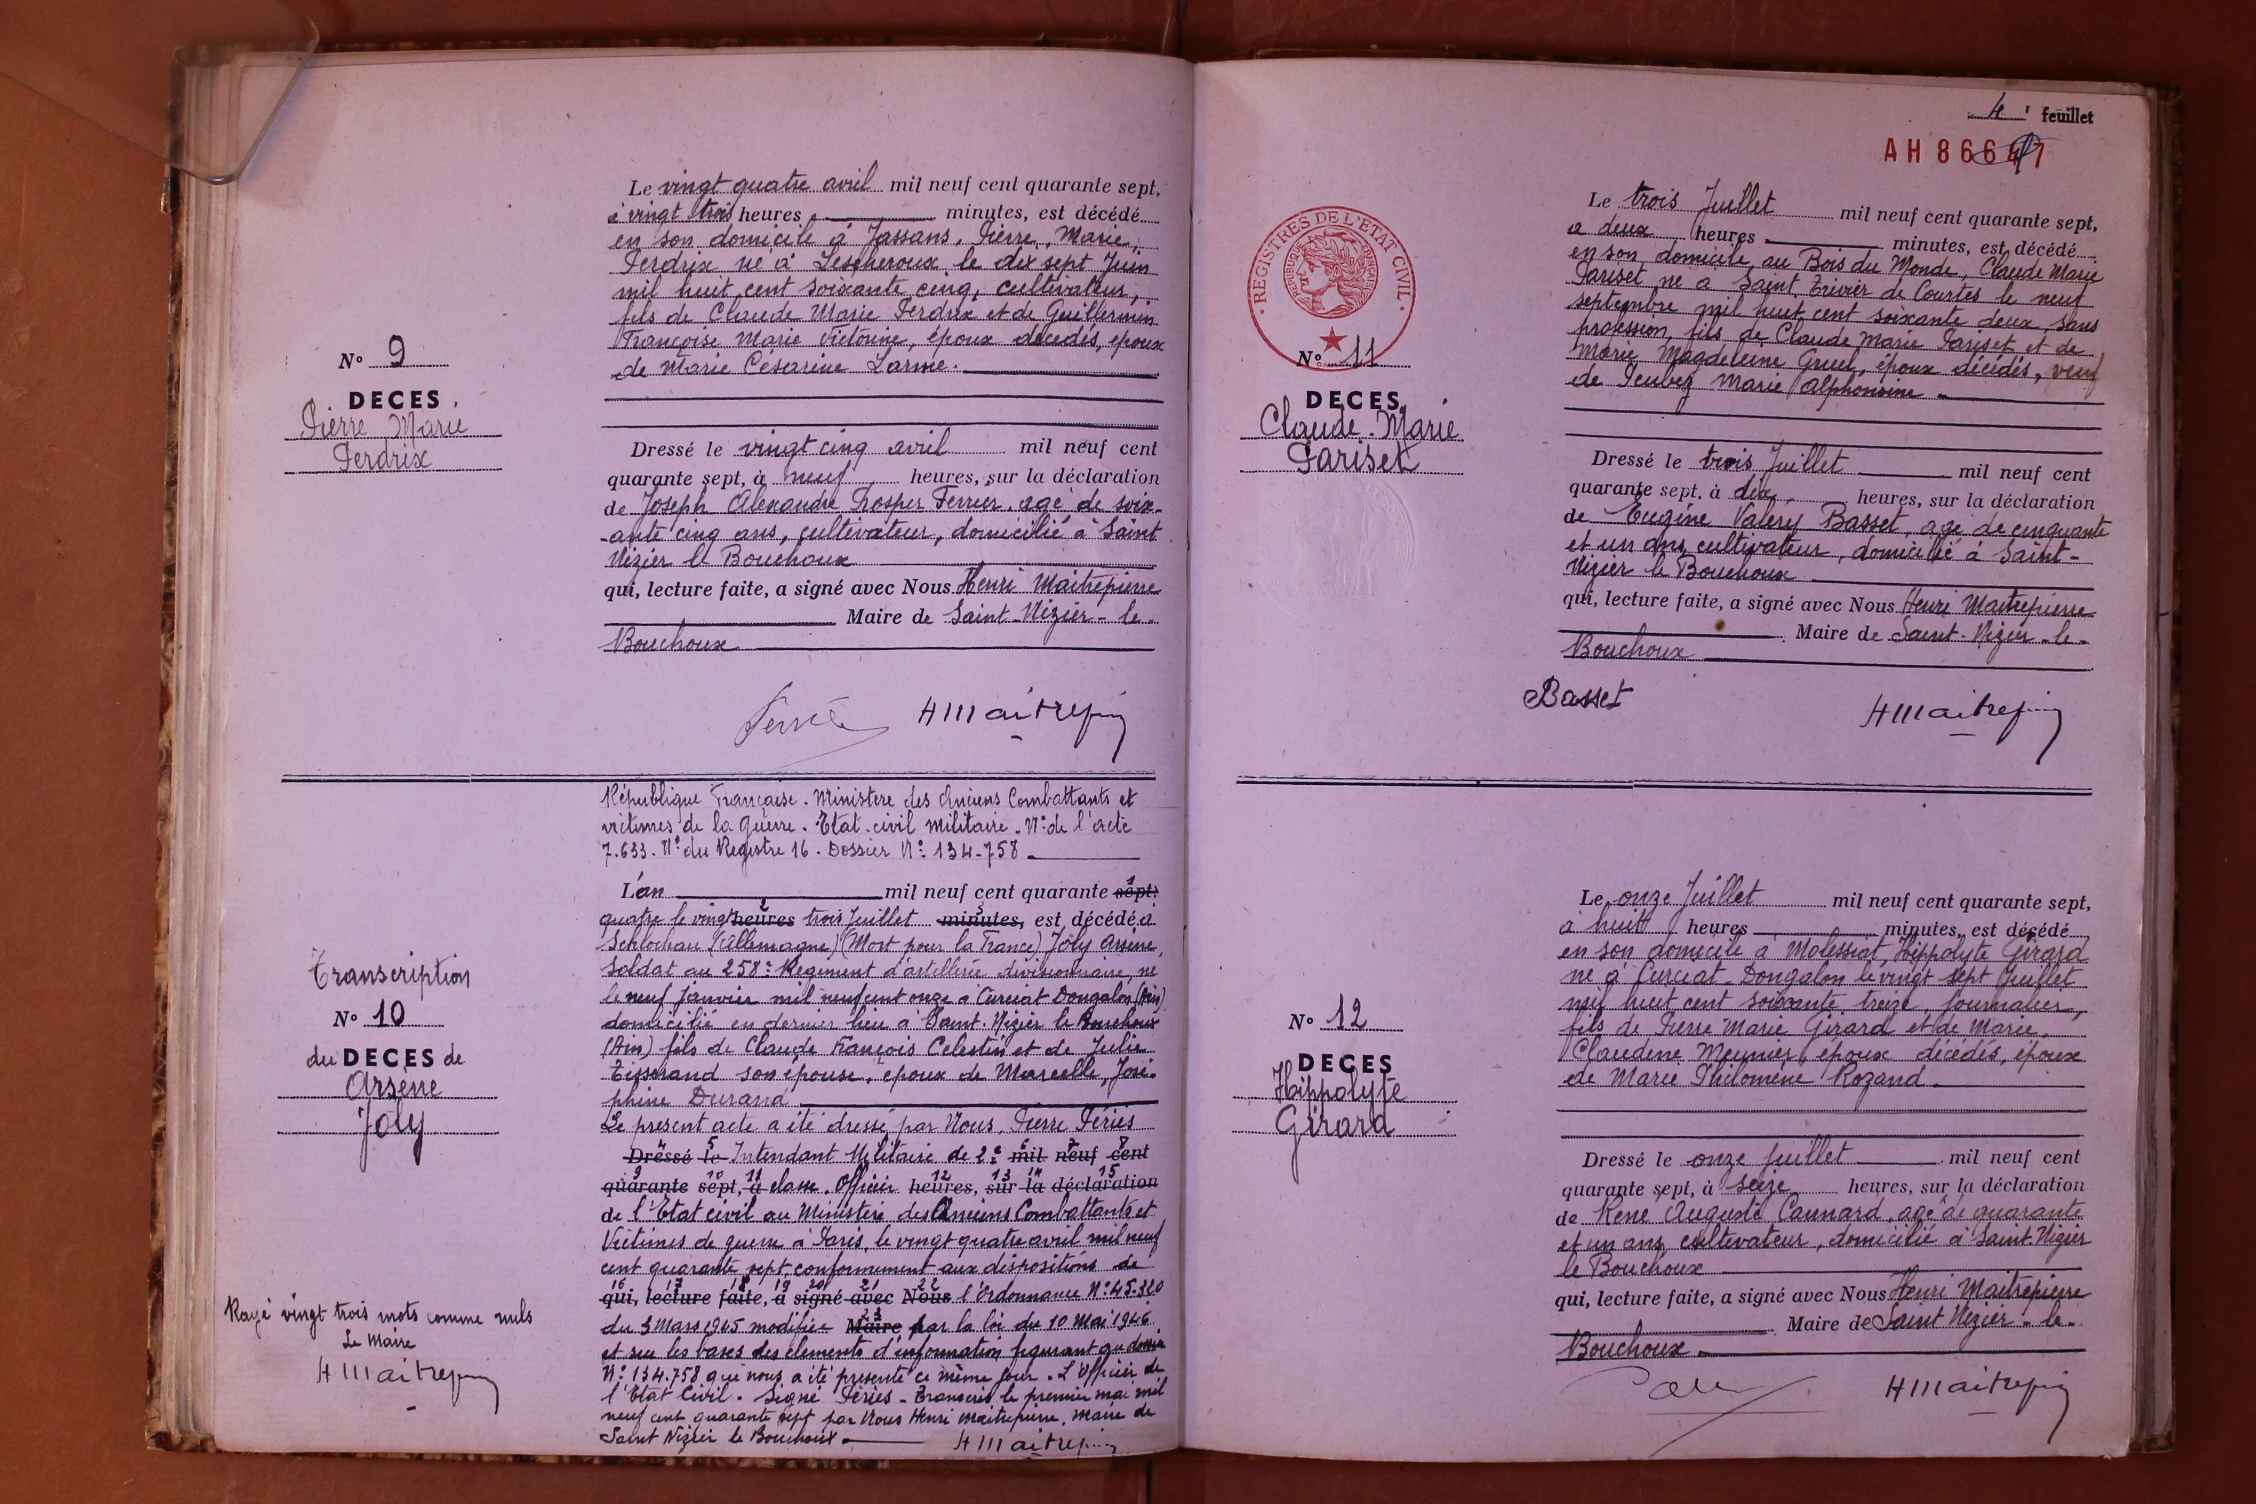 Le vingt quatre avril mil neuf cent quarante sept,
à vingt trois heures minutes, est décédé
en son domicile à Jassans, Pierre, Marie,
Perdrix né à Lescheroux le dix sept Juin
mil huit cent soixante cinq, cultivateur,
fils de Claude Marie Perdrix et de Guillermin
Françoise Marie Victorine, époux décédés, époux
de Marie Césarine Larme.
N° 9
DECES
Pierre Marie
Perdrix
Dressé le vingt cinq avril mil neuf cent
quarante sept, à neuf heures, sur la déclaration
de Joseph Alexandre Prosper Ferrier, agé de soix-
-ante cinq ans, cultivateur, domicilié à Saint
Nizier le Bouchoux
qui, lecture faite, a signé avec Nous Henri Maitrepierre
Maire de Saint-Nizier-le-
Bouchoux
HMaitrepierre
République Française. Ministere des Anciens Combattants et
victimes de la Guerre. Etat-civil militaire. N° de l'acte
7.633. N° du Registre 16. Dossier N° 134-758
L'an mil neuf cent quarante sept.
quatre le vingt heures trois Juillet minutes, est décédé à
Schlochau (Allemagne) (Mort pour la France) Joly Arsène,
Soldat au 258e Régiment d'artillerie divisionnaire, né
le neuf Janvier mil neuf cent onze à Curciat Dongalon (Ain)
domicilié en dernier lieu à Saint-Nizier le Bouchoux
(Ain) fils de Claude François Celestin et de Julie
Tisserand son épouse, époux de Marcelle, José-
phine Durand
Transcription
N° 10
du DECES de
Arsène
Joly
Le présent acte a été dressé par Nous, Pierre Péries
Dressé le Intendant Militaire de 2e mil neuf cent
quarante sept, à classe. Officier heures, sur la déclaration
de l'Etat civil au Ministère des Anciens Combattants et
Victimes de guerre à Paris, le vingt quatre avril mil neuf
cent quarante sept, conformement aux dispositions de
qui, lecture faite, a signé avec Nous l'Ordonnance N° 45-320
du 3 Mars 1945 modifiée Maire par la loi du 10 Mai 1946
et sur les bases des éléments d'information figurant au dossier
N° 134.758 qui nous a été présenté ce même jour. L'Officier de
l'Etat Civil. Signé Péries - Transcrit le premier mai mil
neuf cent quarante sept par Nous Henri Maitrepierre, Maire de
Saint Nizier le Bouchoux.
HMaitrepierre
Rayé vingt trois mots comme nuls
Le Maire
HMaitrepierre
4 feuillet
AH 86647
REGISTRES DE L'ETAT CIVIL
REPUBLIQUE FRANCAISE
Le trois Juillet mil neuf cent quarante sept,
à deux heures minutes, est décédé
en son domicile au Bois du Monde, Claude Marie
Pariset né à Saint Trivier de Courtes le neuf
septembre mil huit cent soixante deux, sans
profession, fils de Claude Marie Pariset et de
Marie Magdeleine Gruel, époux décédés, veuf
de Peubez Marie Alphonsine
N° 11
DECES
Claude-Marie
Pariset
Dressé le trois Juillet mil neuf cent
quarante sept, à dix heures, sur la déclaration
de Eugène Valéry Basset, agé de cinquante
et un ans, cultivateur, domicilié à Saint-
Nizier le Bouchoux
qui, lecture faite, a signé avec Nous Henri Maitrepierre
Maire de Saint-Nizier-le-
Bouchoux
Basset
HMaitrepierre
Le onze Juillet mil neuf cent quarante sept,
à huit heures minutes, est décédé
en son domicile à Molessiat, Hippolyte Girard
né à Curciat-Dongalon le vingt sept Juillet
mil huit cent soixante treize, Journalier,
fils de Pierre Marie Girard et de Marie,
Claudine Meunier, époux décédés, époux
de Marie Philomène Rozand.
N° 12
DECES
Hippolyte
Girard
Dressé le onze juillet mil neuf cent
quarante sept, à seize heures, sur la déclaration
de René Auguste Cannard, agé de quarante
et un ans, cultivateur, domicilié à Saint-Nizier
le Bouchoux
qui, lecture faite, a signé avec Nous Henri Maitrepierre
Maire de Saint Nizier-le-
Bouchoux
HMaitrepierre